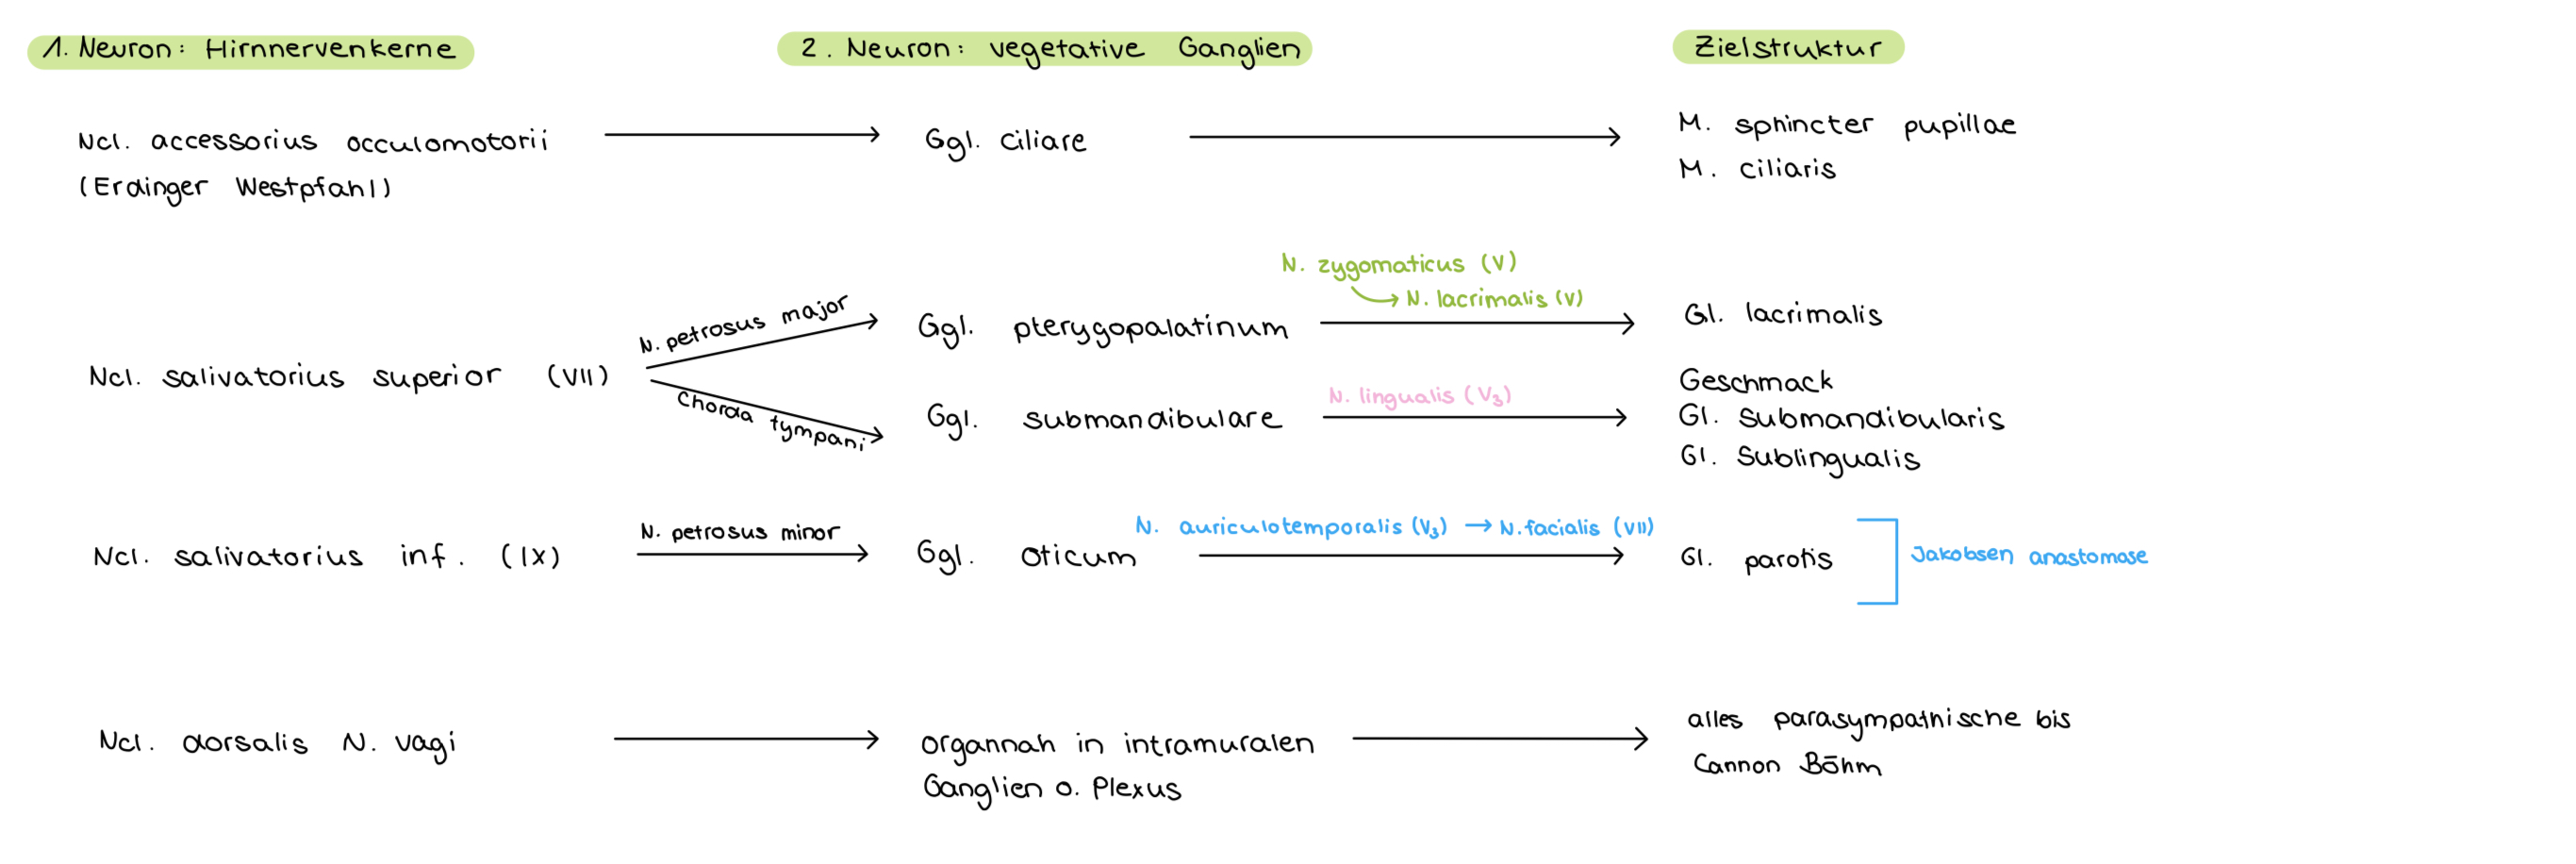 1. Neuron: Hirnnervenkerne
2. Neuron: vegetative Ganglien
Zielstruktur
Ncl. accessorius occulomotorii
(Erdinger Westpfahl)
Ggl. ciliare
M. sphincter pupillae
M. ciliaris
Ncl. salivatorius superior (VII)
N. petrosus major
Chorda tympani
Ggl. pterygopalatinum
N. zygomaticus (V)
→ N. lacrimalis (V)
Gl. lacrimalis
Ggl. submandibulare
N. lingualis (V₃)
Geschmack
Gl. Submandibularis
Gl. Sublingualis
Ncl. salivatorius inf. (IX)
N. petrosus minor
Ggl. oticum
N. auriculotemporalis (V₃) → N. facialis (VII)
Gl. parotis
Jakobsen anastomose
Ncl. dorsalis N. vagi
organnah in intramuralen
Ganglien o. Plexus
alles parasympathische bis
Cannon Böhm